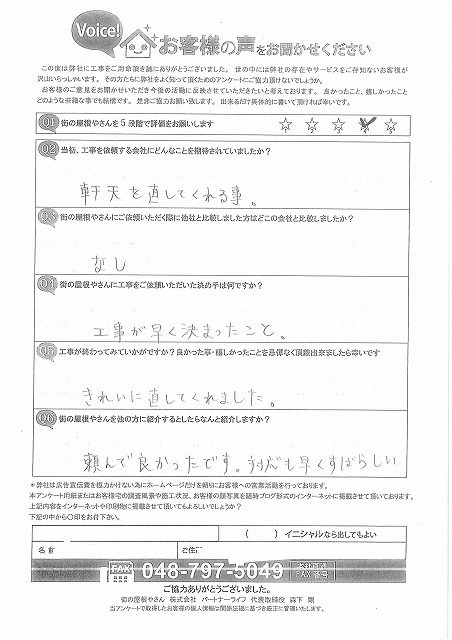 Voice!
お客様の声をお聞かせください
この度は弊社に工事をご用命頂き誠にありがとうございました。 世の中には弊社の存在やサービスをご存知ないお客様が
沢山いらっしゃいます。その方たちに弊社をよく知って頂くためのアンケートにご協力頂けないでしょうか。
お客様のご意見をお聞かせいただき今後の活動に反映させていただきたいと考えております。 良かったこと、嬉しかったこと
どのような些細な事でも結構です。 是非ご協力お願い致します。 出来るだけ具体的に書いて頂ければ幸いです。
Q1 街の屋根やさんを5段階で評価をお願いします ☆ ☆ ☆ ☆ ☆
Q2 当初、工事を依頼する会社にどんなことを期待されていましたか?
軒天を直してくれる事。
Q3 街の屋根やさんにご依頼いただく際に他社と比較しました方はどこの会社と比較しましたか?
なし
Q4 街の屋根やさんに工事をご依頼いただいた決め手は何ですか?
工事が早く決まったこと。
Q5 工事が終わってみていかがですか?良かった事・嬉しかったことを忌憚なく頂戴出来ましたら幸いです
きれいに直してくれました。
Q6 街の屋根やさんを他の方に紹介するとしたらなんと紹介しますか?
頼んで良かったです。対応も早くすばらしい
*弊社は広告宣伝費を極力かけない為にホームページだけを頼りにお客様への営業活動を行っております。
本アンケート用紙またはお客様宅の調査風景や施工状況、お客様の顔写真を随時ブログ形式のインターネットに掲載させて頂いております。
上記内容をインターネットや印刷物に掲載させて頂いてもよろしいでしょうか?
下記の中から〇印をお付下さい。
( ) イニシャルなら出してもよい
名前 ご住
FAX 048-797-5049 FAX番号
ご協力ありがとうございました。
街の屋根やさん 株式会社 パートナーライフ 代表取締役 森下 剛
当アンケートで取得したお客様の個人情報は関係法規に基づき厳正に管理いたします。